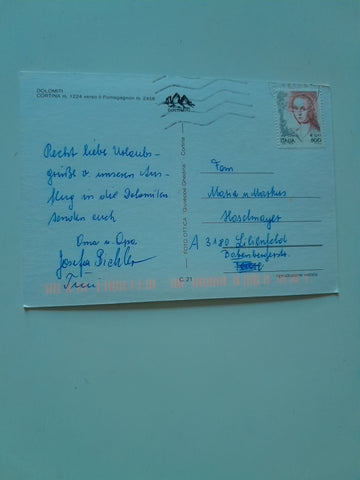 DOLOMITI
CORTINA m. 1224 verso il Pomagagnon m. 2456
Recht liebe Urlaubs-
grüße v. unseren Aus-
flug in die Dolomiten
senden euch
Oma u. Opa
Josefa Pichler
FOTO OTTICA Giuseppe Ghedina - Cortina
C. 21
ITALIA
800
Fam
Maria u. Markus
A 3180 Lilienfeld
Babenbergerstr.
riproduzione vietata